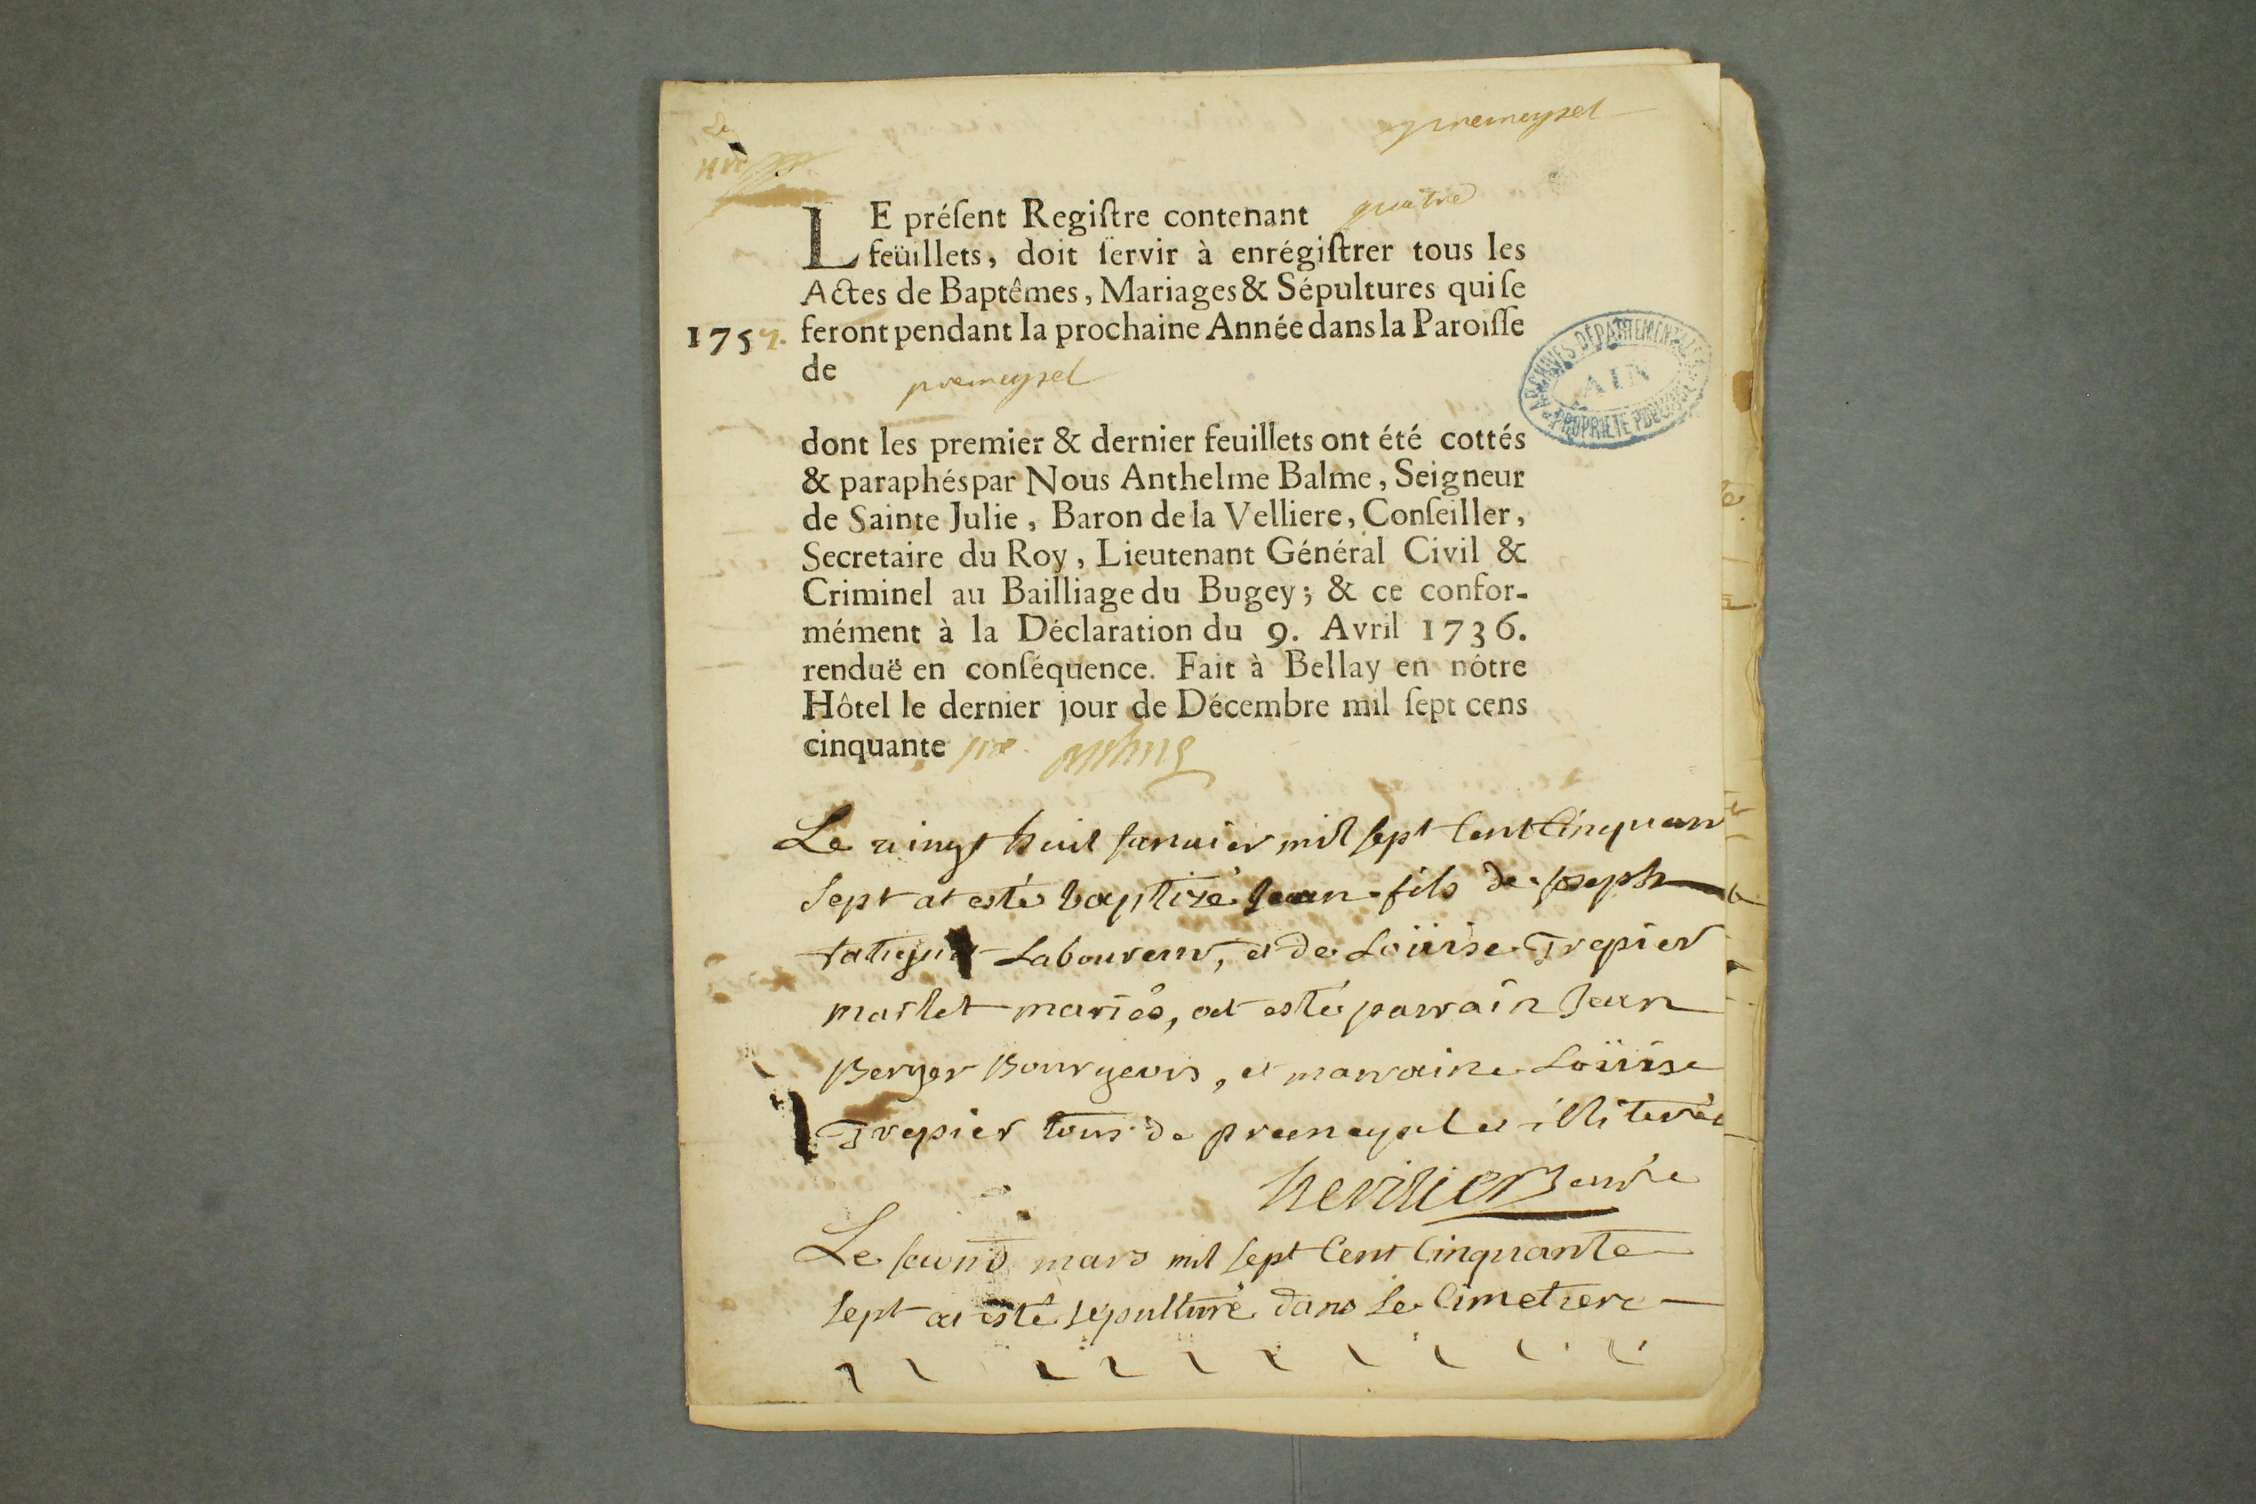 premeyzel
LE préſent Regiſtre contenant quatre
feüillets, doit ſervir à enrégiſtrer tous les
Actes de Baptêmes, Mariages & Sépultures qui ſe
1757. feront pendant la prochaine Année dans la Paroiſſe
de premeyzel
ARCHIVES DÉPARTEMENTALES
AIN
PROPRIÉTÉ PUBLIQUE
dont les premier & dernier feuillets ont été cottés
& paraphés par Nous Anthelme Balme, Seigneur
de Sainte Julie, Baron de la Velliere, Conſeiller,
Secretaire du Roy, Lieutenant Général Civil &
Criminel au Bailliage du Bugey; & ce confor-
mément à la Déclaration du 9. Avril 1736.
renduë en conſéquence. Fait à Bellay en nôtre
Hôtel le dernier jour de Décembre mil ſept cens
cinquante six
Le vingt huit Janvier mil sept Cent Cinquan
sept at esté baptizé Jean fils de Joseph
Laboureur, et de Loüise Trepier
marlet mariés, at esté parrain Jean
Berger Bourgeois, et marraine Loüise
Trepier tous de premeyzel et illiterés
Curé
Le second mars mil sept Cent Cinquante
sept at esté sépulturé dans le Cimetiere